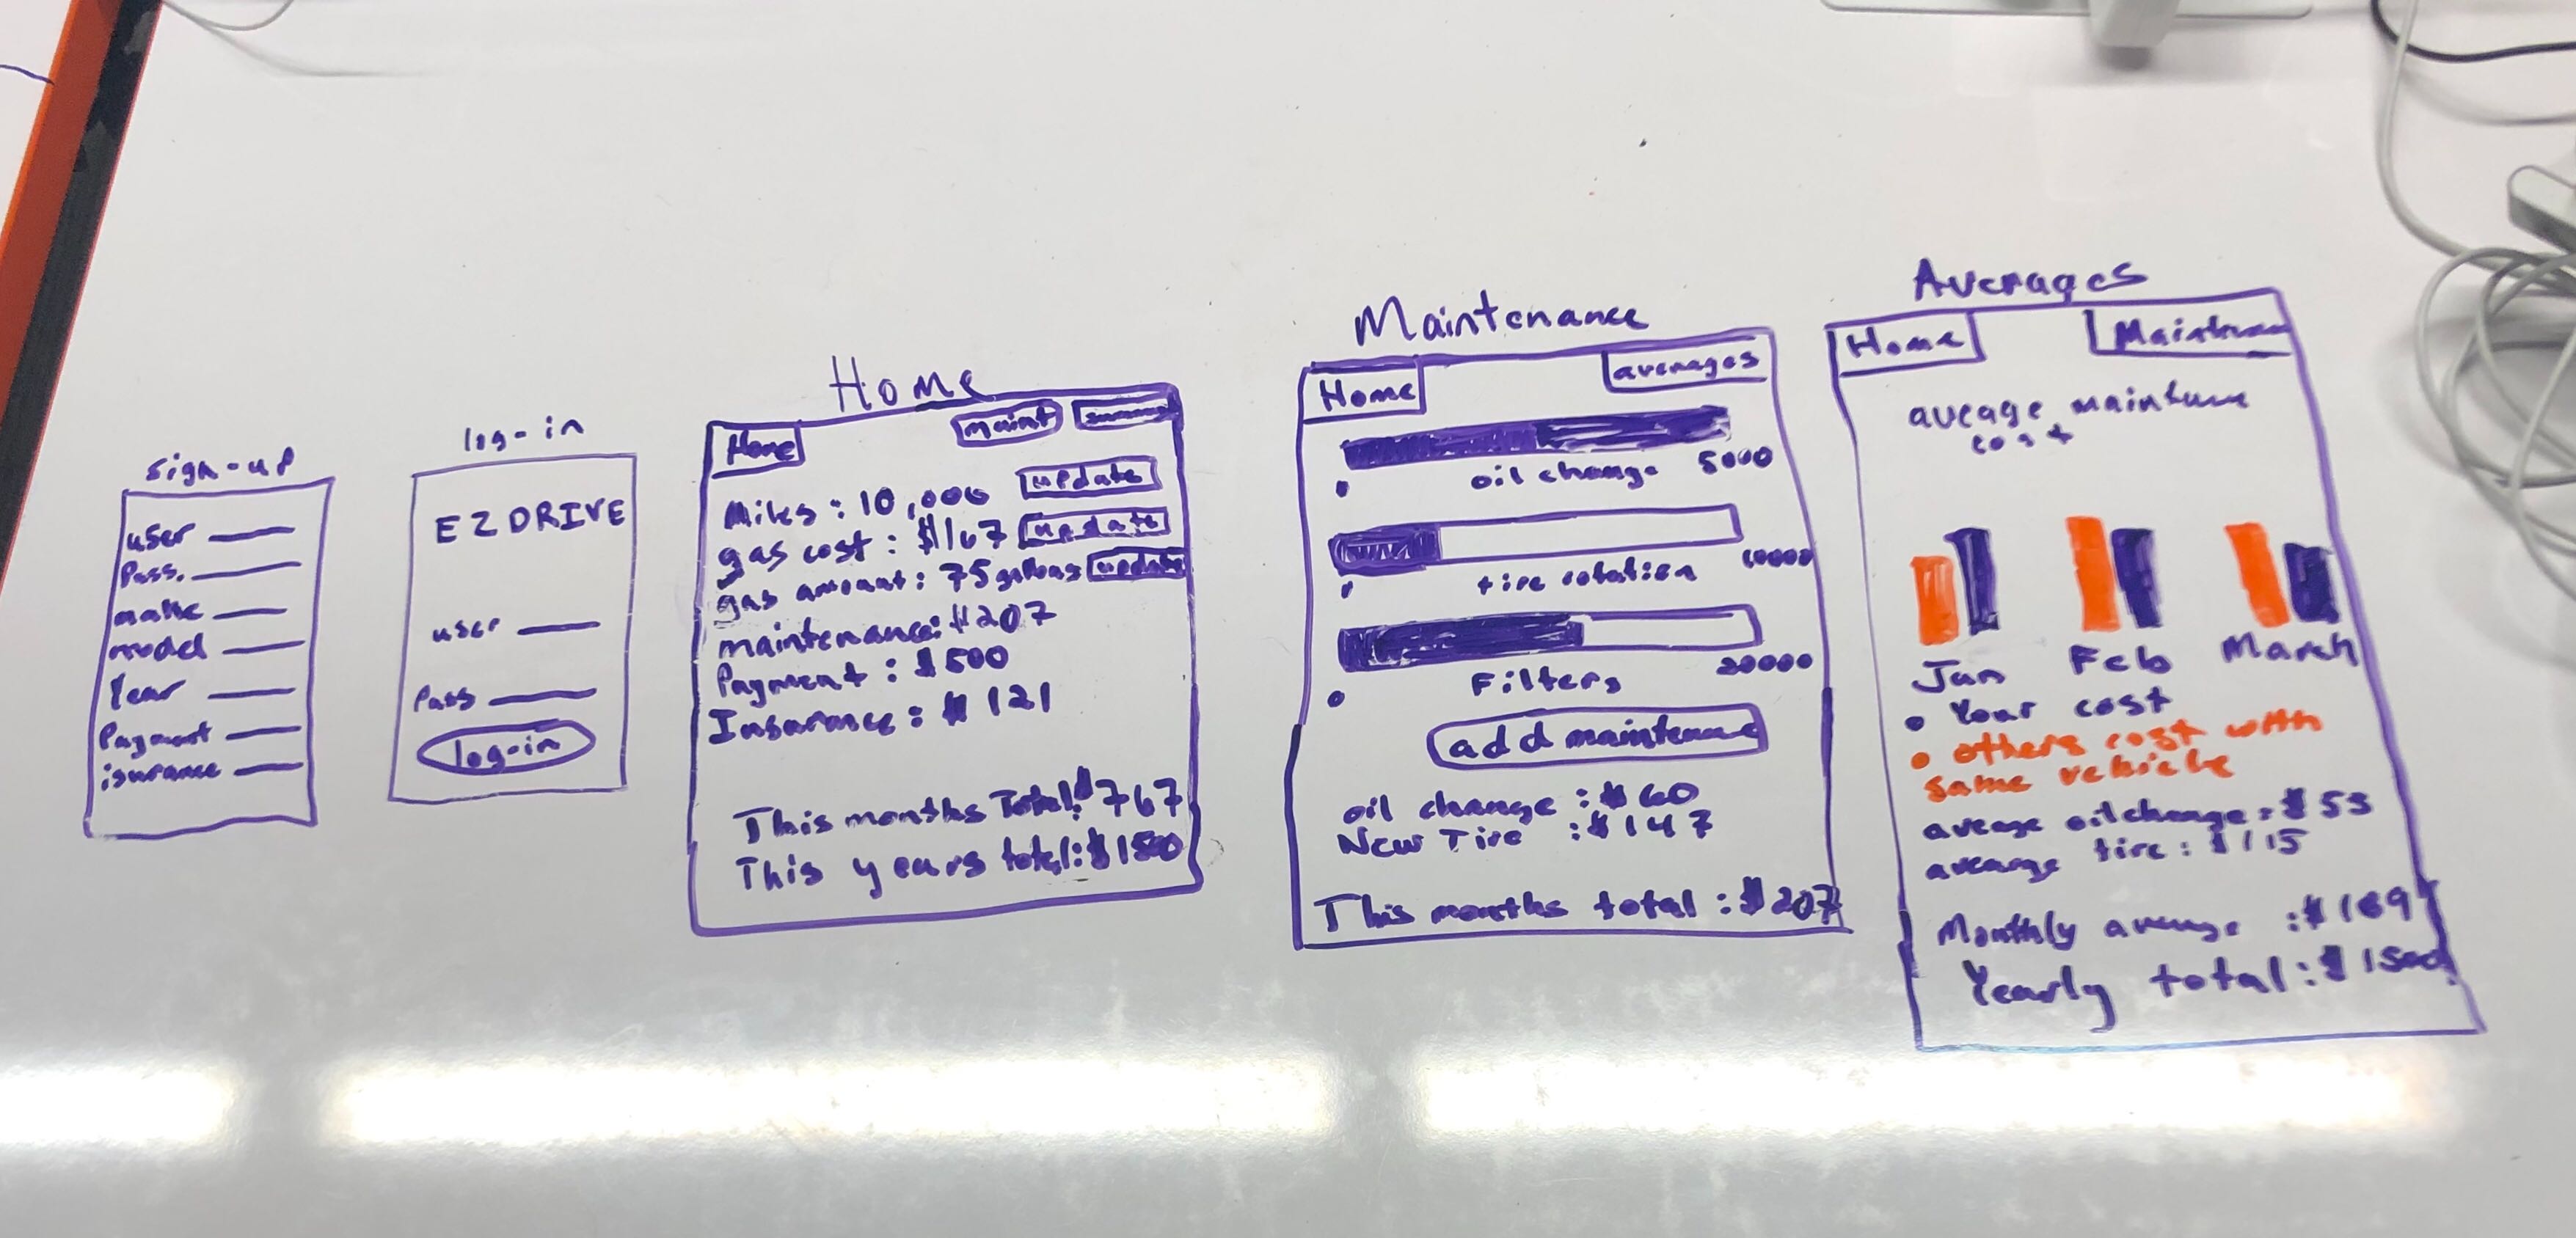 sign-up
user
Pass.
make
model
Year
Payment
isurance
log-in
EZDRIVE
user
Pass
log-in
Home
Home maint
Miles : 10,000 update
gas cost : $167 update
gas amount : 75 gallons update
maintenance: $207
Payment : $500
Insurance : $121
This months Total: $767
This years total: $1500
Maintenance
Home averages
oil change 5000
tire rotation 10000
Filters 20000
add maintenance
oil change : $60
New Tire : $147
This months total : $207
Averages
Home
cost
Jan Feb March
• Your cost
• others cost with
same vehicle
average oil change : $53
average tire : $115
Monthly average : $169
Yearly total : $1500